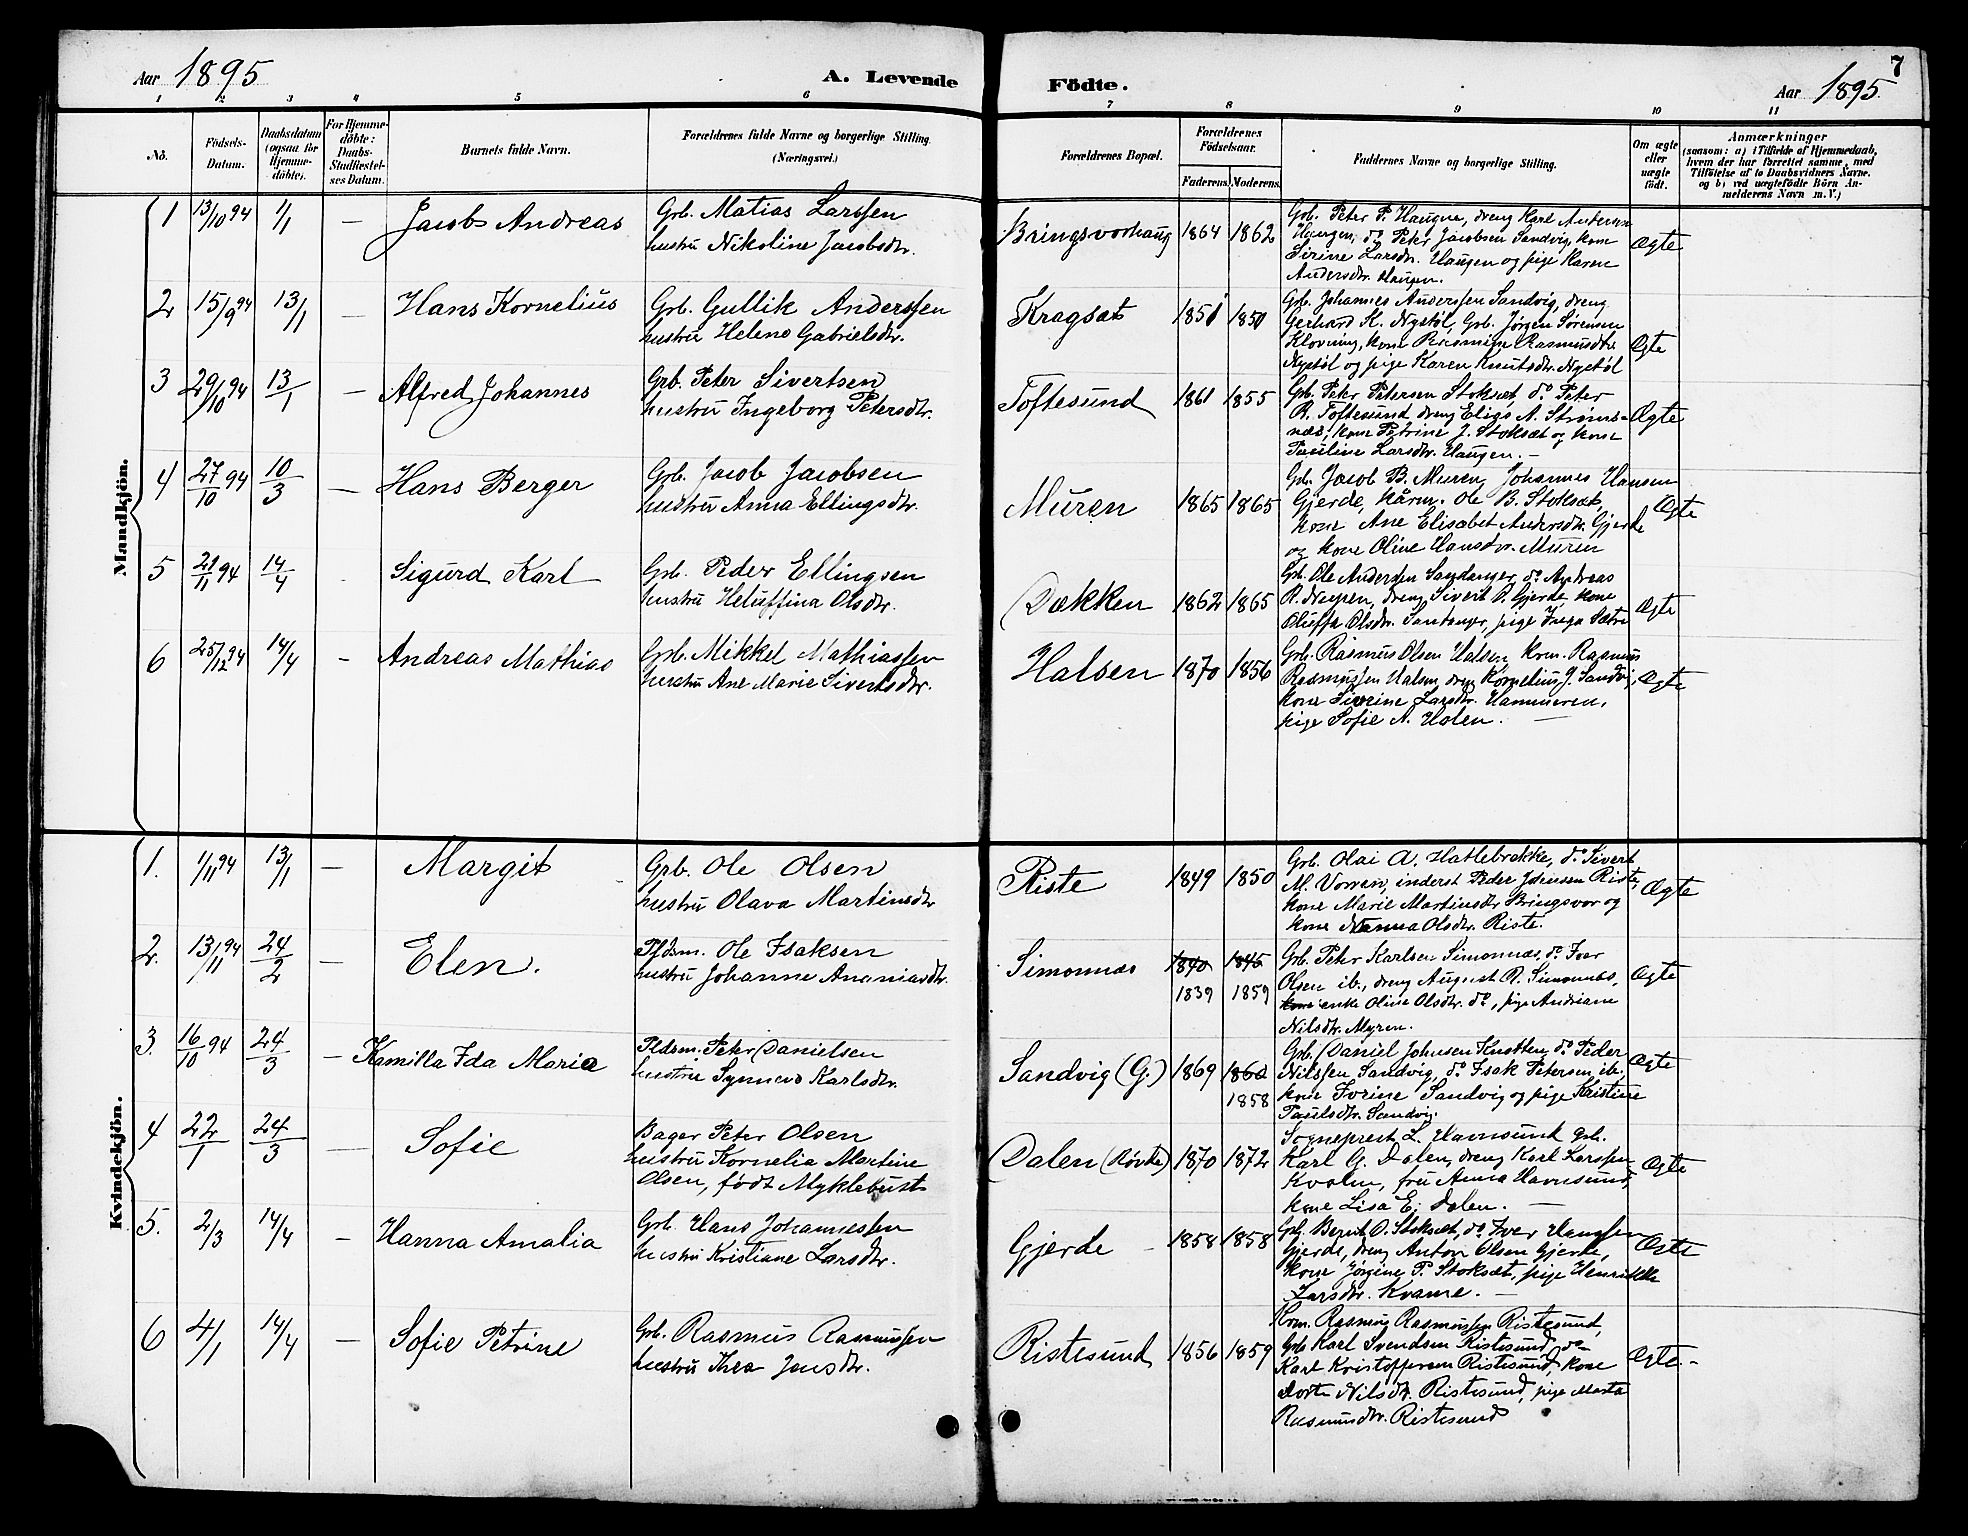 Aar 1895
A. Levende
Födte.
Aar 1895
7
1 2 3 4 5 6 7 8 9 10 11
No.
Födsels-Datum.
Daabsdatum (ogsaa for Hjemme-döbte).
For Hjemme-döbte: Daabs-Stadfæstel-ses Datum.
Barnets fulde Navn.
Forældrenes fulde Navne og borgerlige Stilling. (Næringsvei.)
Forældrenes Bopæl.
Forældrenes Födselsaar.
Faderens. Moderens.
Faddernes Navne og borgerlige Stilling.
Om ægte eller uægte födt.
Anmærkninger
(saasom: a) i Tilfælde af Hjemmedaab,
hvem der har forrettet samme, med
Tilföielse af to Daabsvidners Navne.
og b) ved uægtefödte Börn An-
melderens Navn m. V.)
Mandkjön.
1 13/10 94 1/1 — Jacob Andreas
Grb. Matias Larssen
hustru Nikoline Jacobsdtr.
Bringsvorhaug 1864 1862
Grb. Peter P. Haugne, dreng Karl Andersen
Haugen, do Peter Jacobsen Sandvig, kone
Sirine Larsdtr. Haugen og pige Karen
Andersdtr. Haugen.
Ægte
2 15/9 94 13/1 — Hans Kornelius
Grb. Gullik Anderssen
hustru Helene Gabrielsdtr.
Kragsæt 1851 1850
Grb. Johannes Anderssen Sandvig, dreng
Gerhard K. Nystøl, Grb. Jørgen Sørensen
Klovning, kone Rasmusdtr
Nystøl og pige Karen Knutsdtr. Nystøl
Ægte
3 29/10 94 13/1 — Alfred Johannes
Grb. Peter Sivertsen
hustru Ingeborg Petersdtr.
Toftesund 1861 1855
Grb. Peter Petersen Stoksæt do Peter
R. Toftesund dreng Elias A. Strøms-
næs, kone Petrine J. Stoksæt og kone
Pauline Larsdtr. Haugen. -
Ægte
4 27/10 94 10/3 — Hans Berger
Grb. Jacob Jacobsen
hustru Anna Ellingsdtr.
Muren 1865 1865
Grb. Jacob B. Muren, Johannes Hansen
Gjerde, kårm. Ole B. Stoksæt,
kone Ane Elisabet Andersdtr. Gjerde
og kone Oline Hansdtr. Muren
Ægte
5 21/11 94 14/4 - Sigurd Karl
Grb. Peder Ellingsen
hustru Heluffina Olsdtr.
Dækken 1862 1865
Grb. Ole Andersen Sandanger, do Andreas
R. dreng Sivert O. Gjerde, kone
Oluffa Olsdtr. Sandanger, pige Inga Sætre
Ægte
6 25/12 94 14/4 - Andreas Mathias
Grb. Mikkel Mathiassen
hustru Ane Marie Sivertsdtr.
Halsen 1870 1856
Grb. Rasmus Olsen Halsen, Krm. Rasmus
Rasmussen Halsen, dreng Kornelius J. Sandvig,
kone Siverine Larsdtr. Hammeren,
pige Sofie A. Holen. —
Ægte
Kvindekjön.
1. 1/11 94 13/1 — Margit
Grb. Ole Olsen
hustru Olava Martinsdtr
Riste 1849 1850
Grb. Olai A. Hatlebrække, do Sivert
M. Vorren, inderst Peder Johnsen Riste,
kone Marie Martinsdtr Bringsvor og
kone Nanna Olsdtr. Riste.
Ægte
2. 13/11 94 24/2 — Elen.
Pldsm. Ole Isaksen
hustru Johanne Ananiasdtr.
Simonnæs 1840 1845
1839 1859
Grb. Peter Karlsen Simonnæs, do Ivar
Olsen ib., dreng August R. Simonnæs,
kone enke Oline Olsdtr. do, pige Andriane
Nilsdtr. Myren.
Ægte
3. 16/10 94 24/3 — Kamilla Ida Maria
Pldsm. Peter Danielsen
hustru Synneve Karlsdtr.
Sandvig (G.) 1869 1860
1858
Grb. Daniel Johnsen Knotten, do Peder
Nilssen Sandvig, do Isak Petersen ib.
kone Ivrine Sandvig og pige Kristine
Paulsdtr. Sandvig.
Ægte
4 22/1 24/3 — Sofie
Bager Peter Olsen
hustru Kornelia Martine
Olsen, født Myklebust
Dalen (Røvde) 1870 1872
Sogneprest L. Havnsund Grb.
Karl G. Dalen, dreng Karl Larssen
Kvalen, fru Anna Havnsund,
kone Lisa E. Dalen. —
Ægte
5. 2/3 14/4 - Hanna Amalia
Grb. Hans Johannessen
hustru Kristiane Larsdtr.
Gjerde - 1858 1858
Grb. Bernt O. Stoksæt, do Iver Hanssen
Gjerde, dreng Anton Olsen Gjerde,
kone Jørgine P. Stoksæt, pige Henrikke
Larsdtr. Kvame. —
Ægte
6 4/1 14/4 — Sofie Petrine
Grb. Rasmus Rasmussen
hustru Thea Jensdtr.
Ristesund 1856 1859
Krm. Rasmus Rasmussen Ristesund,
Grb Karl Svendsen Ristesund, do-
Karl Kristoffersen Ristesund, kone
Dorte Nilsdtr. Ristesund, pige Marta
Rasmusdtr. Ristesund
Ægte.-